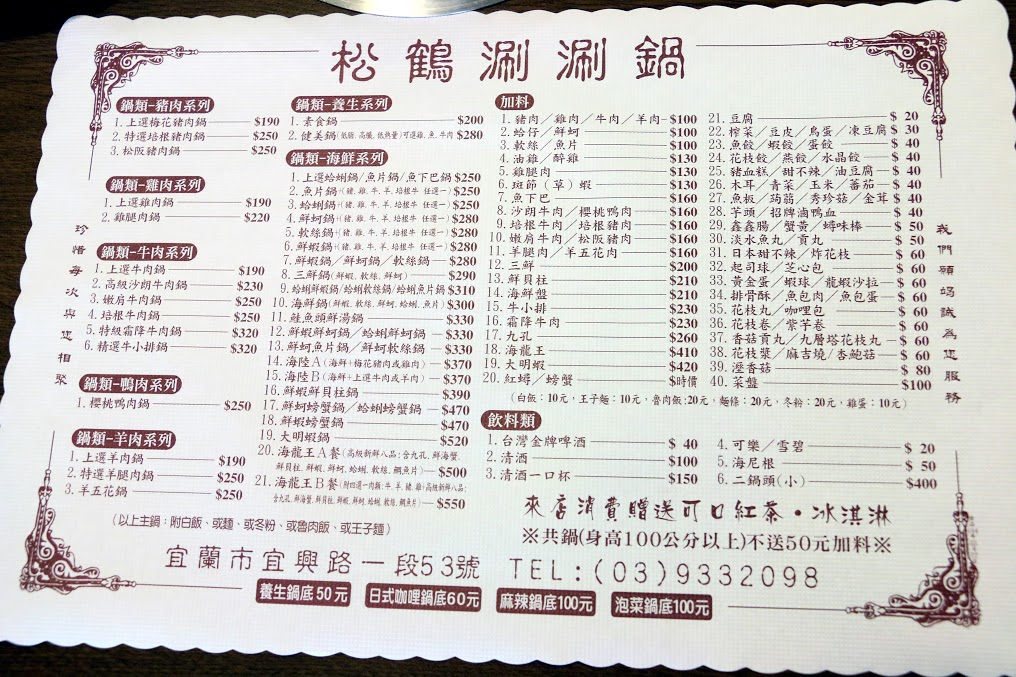 松鶴涮涮鍋
鍋類-豬肉系列
1.上選梅花豬肉鍋 $190
2.特選培根豬肉鍋 $250
3.松阪豬肉鍋 $250
鍋類-雞肉系列
1.上選雞肉鍋 $190
2.雞腿肉鍋 $220
鍋類-牛肉系列
1.上選牛肉鍋 $190
2.高級沙朗牛肉鍋 $230
3.嫩肩牛肉鍋 $250
4.培根牛肉鍋 $250
5.特級霜降牛肉鍋 $320
6.精選牛小排鍋 $320
鍋類-鴨肉系列
1.櫻桃鴨肉鍋 $250
鍋類-羊肉系列
1.上選羊肉鍋 $190
2.特選羊腿肉鍋 $250
3.羊五花鍋 $250
(以上主鍋:附白飯、或麵、或冬粉、或魯肉飯、或王子麵)
鍋類-養生系列
1.素食鍋 $200
2.健美鍋(低脂,高纖,低熱量)可選雞,魚,牛肉 $280
鍋類-海鮮系列
1.上選蛤蜊鍋/魚片鍋/魚下巴鍋 $250
2.魚片鍋+(豬,雞,牛,羊,培根牛 任選一) $250
3.蛤蜊鍋+(豬,雞,牛,羊,培根牛 任選一) $250
4.鮮蚵鍋+(豬,雞,牛,羊,培根牛 任選一) $280
5.軟絲鍋+(豬,雞,牛,羊,培根牛 任選一) $280
6.鮮蝦鍋+(豬,雞,牛,羊,培根牛 任選一) $280
7.鮮蝦鍋/鮮蚵鍋/軟絲鍋 $280
8.三鮮鍋(鮮蝦,軟絲,鮮蚵) $290
9.蛤蜊鮮蝦鍋/蛤蜊軟絲鍋/蛤蜊魚片鍋 $300
10.海鮮鍋(鮮蝦,軟絲,鮮蚵,蛤蜊,魚片) $310
11.鮭魚頭鮮湯鍋 $330
12.鮮蚵鮮蝦鍋/蛤蜊鮮蚵鍋 $330
13.鮮蚵魚片鍋/鮮蚵軟絲鍋 $330
14.海陸A(海鮮+梅花豬肉或雞肉) $370
15.海陸B(海鮮+上選牛肉或羊肉) $370
16.鮮蝦鮮貝柱鍋 $390
17.鮮蚵螃蟹鍋/蛤蜊螃蟹鍋 $470
18.鮮蝦螃蟹鍋 $470
19.大明蝦鍋 $520
20.海龍王A餐(高級新鮮八品:含九孔,鮮海蟹,
鮮貝柱,鮮蝦,鮮蚵,蛤蜊,軟絲,鯛魚片) $500
21.海龍王B餐(附四選一肉飯:牛,羊,豬,雞+高級新鮮八品:
含九孔,鮮海蟹,鮮貝柱,鮮蝦,鮮蚵,蛤蜊,軟絲,鯛魚片) $550
加料
1.豬肉/雞肉/牛肉/羊肉 $100
2.蛤仔/鮮蚵 $100
3.軟絲/魚片 $100
4.油雞/醉雞 $130
5.雞腿肉 $130
6.斑節(草)蝦 $130
7.魚下巴 $160
8.沙朗牛肉/櫻桃鴨肉 $160
9.培根牛肉/培根豬肉 $160
10.嫩肩牛肉/松阪豬肉 $160
11.羊腿肉/羊五花肉 $160
12.三鮮 $200
13.鮮貝柱 $210
14.海鮮盤 $210
15.牛小排 $230
16.霜降牛肉 $230
17.九孔 $260
18.海龍王 $410
19.大明蝦 $420
20.紅蟳/螃蟹 $時價
21.豆腐 $ 20
22.榨菜/豆皮/鳥蛋/凍豆腐 $ 30
23.魚餃/蝦餃/蛋餃 $ 40
24.花枝餃/燕餃/水晶餃 $ 40
25.豬血糕/甜不辣/油豆腐 $ 40
26.木耳/青菜/玉米/蕃茄 $ 40
27.魚板/蒟蒻/秀珍菇/金茸 $ 40
28.芋頭/招牌滷鴨血 $ 40
29.鑫鑫腸/蟹黃/蟳味棒 $ 50
30.淡水魚丸/貢丸 $ 50
31.日本甜不辣/炸花枝 $ 60
32.起司球/芝心包 $ 60
33.黃金蛋/蝦球/龍蝦沙拉 $ 60
34.排骨酥/魚包肉/魚包蛋 $ 60
35.花枝丸/咖哩包 $ 60
36.花枝卷/紫芋卷 $ 60
37.香菇貢丸/九層塔花枝丸 $ 60
38.花枝漿/麻吉燒/杏鮑菇 $ 60
39.溼香菇 $ 80
40.菜盤 $100
(白飯:10元,王子麵:10元,魯肉飯:20元,麵條:20元,冬粉:20元,雞蛋:10元)
飲料類
1.台灣金牌啤酒 $ 40
2.清酒 $100
3.清酒一口杯 $150
4.可樂/雪碧 $ 20
5.海尼根 $ 50
6.二鍋頭(小) $400
來店消費贈送可口紅茶・冰淇淋
※共鍋(身高100公分以上)不送50元加料※
宜蘭市宜興路一段53號 TEL:(03)9332098
養生鍋底50元 日式咖哩鍋底60元 麻辣鍋底100元 泡菜鍋底100元
珍惜每次與您相聚
我們願竭誠為您服務